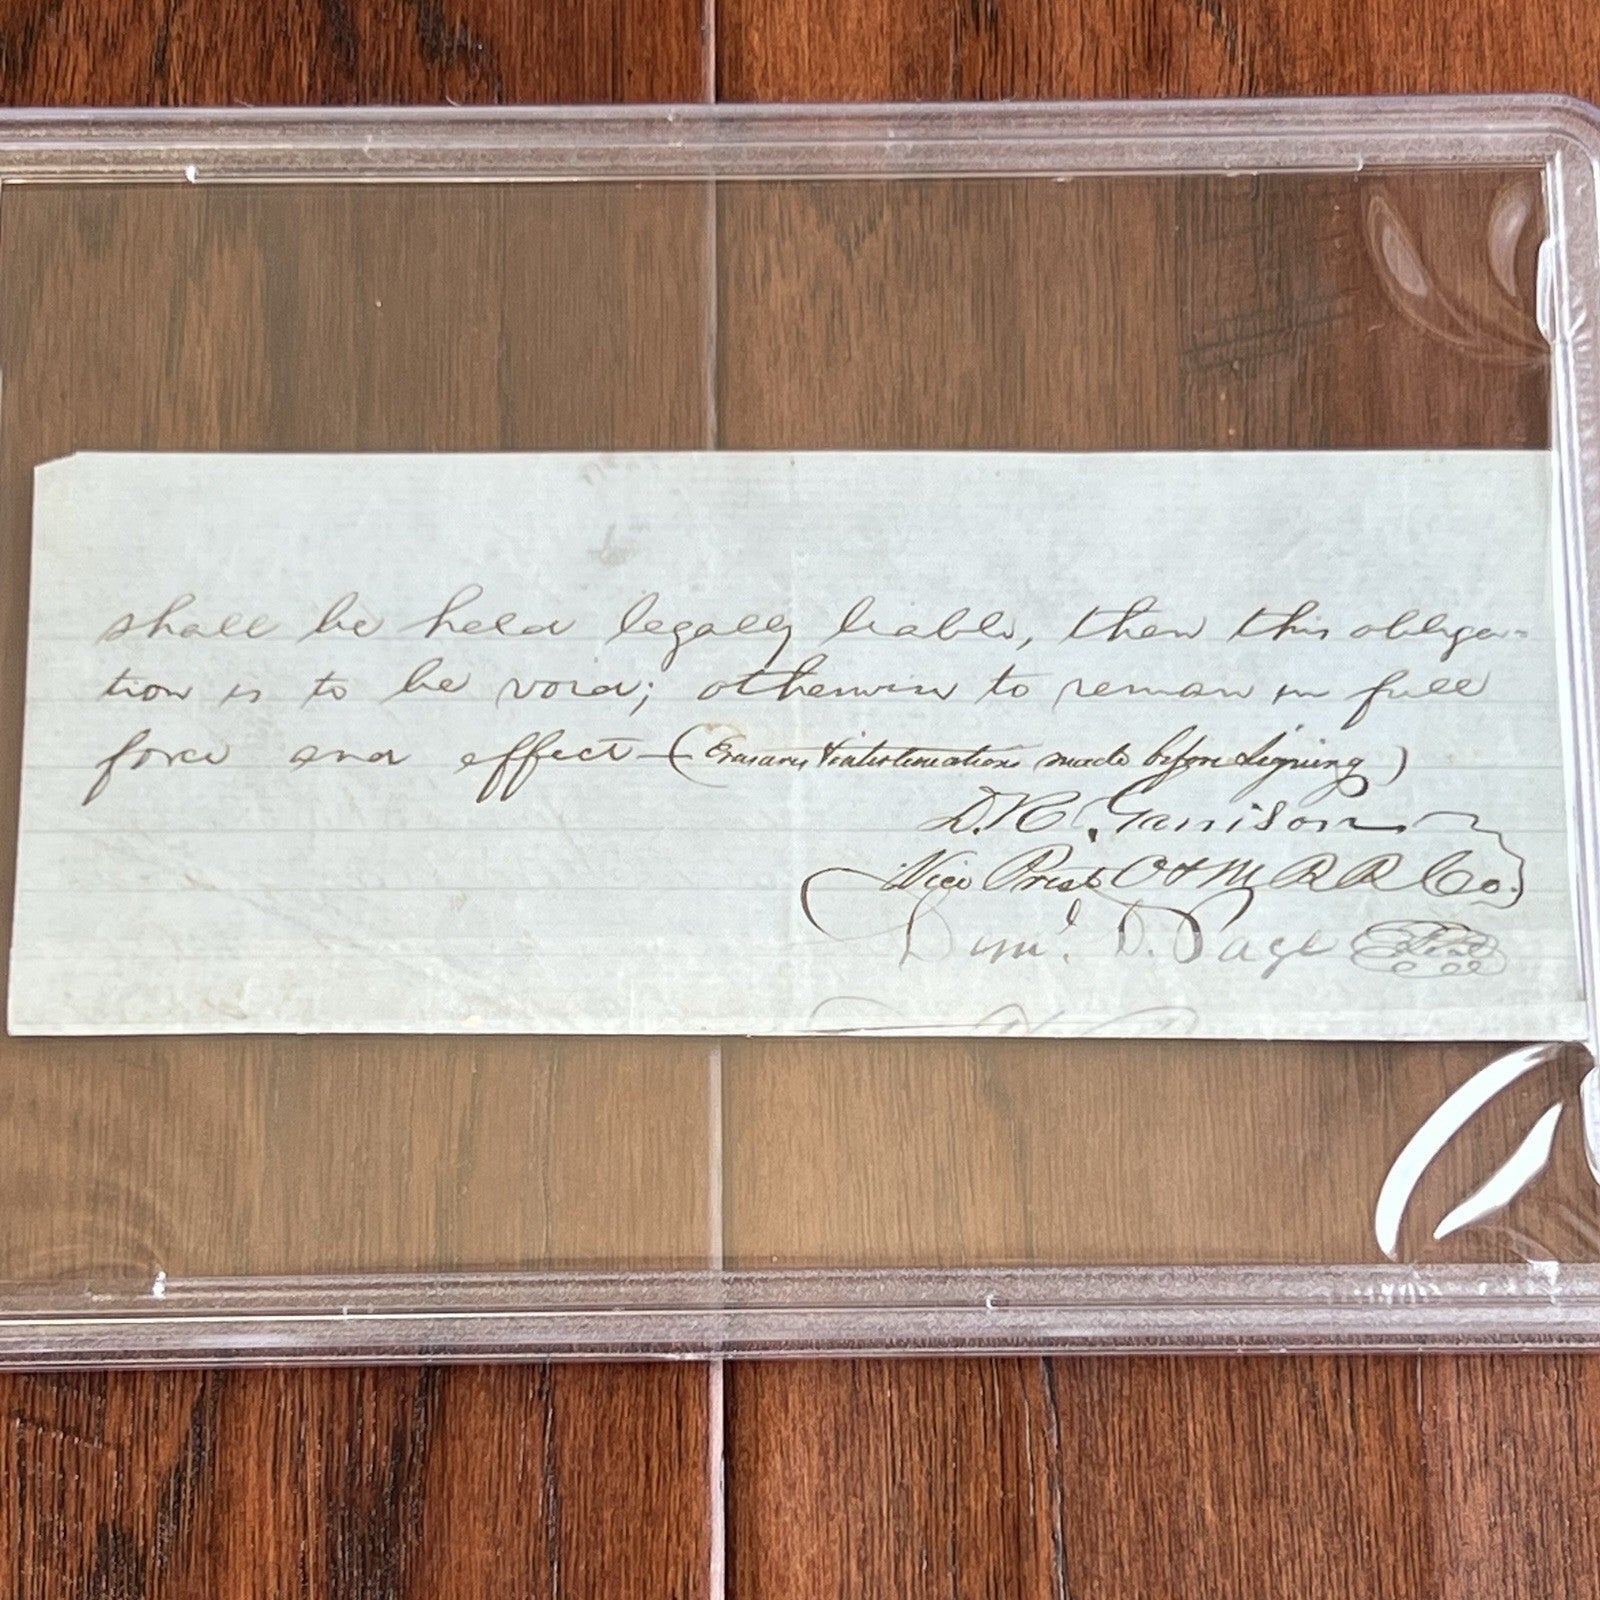 shall be held legally liable, then this obliga=
tion is to be void; otherwise to remain in full
force and effect — (Erasures & interlineations made before signing)
D. R. Garrison
Vice Prest O & M R R Co.
Danl. D. Page